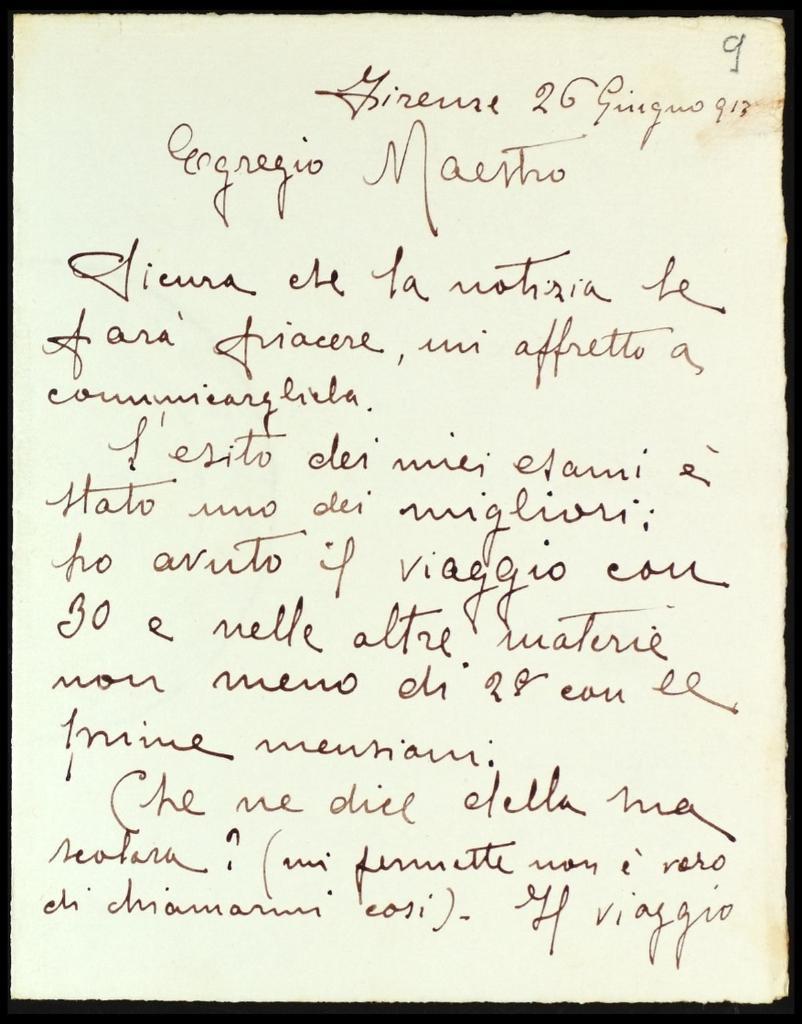 9
Firenze 26 Giugno 913
Egregio Maestro
Sicura che la notizia le
farà piacere, mi affretto a
comunicargliela.
L'esito dei miei esami è
stato uno dei migliori:
ho avuto il viaggio con
30 e nelle altre materie
non meno di 28 con le
prime menzioni.
Che ne dice della sua
scolara? (mi permette non è vero
di chiamarmi così). Il viaggio